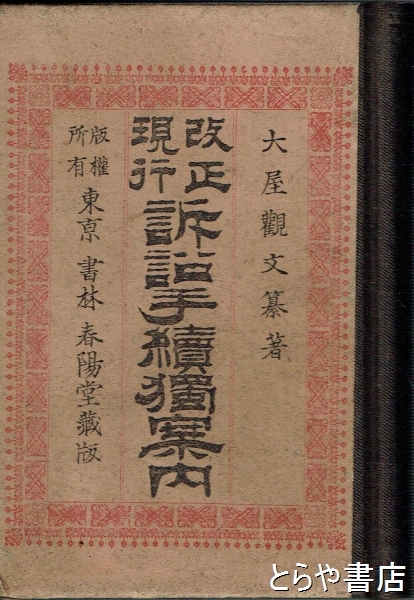 大屋觀文纂著
改正
現行
訴訟手續獨案内
版權
所有
東京書林春陽堂藏版
とらや書店